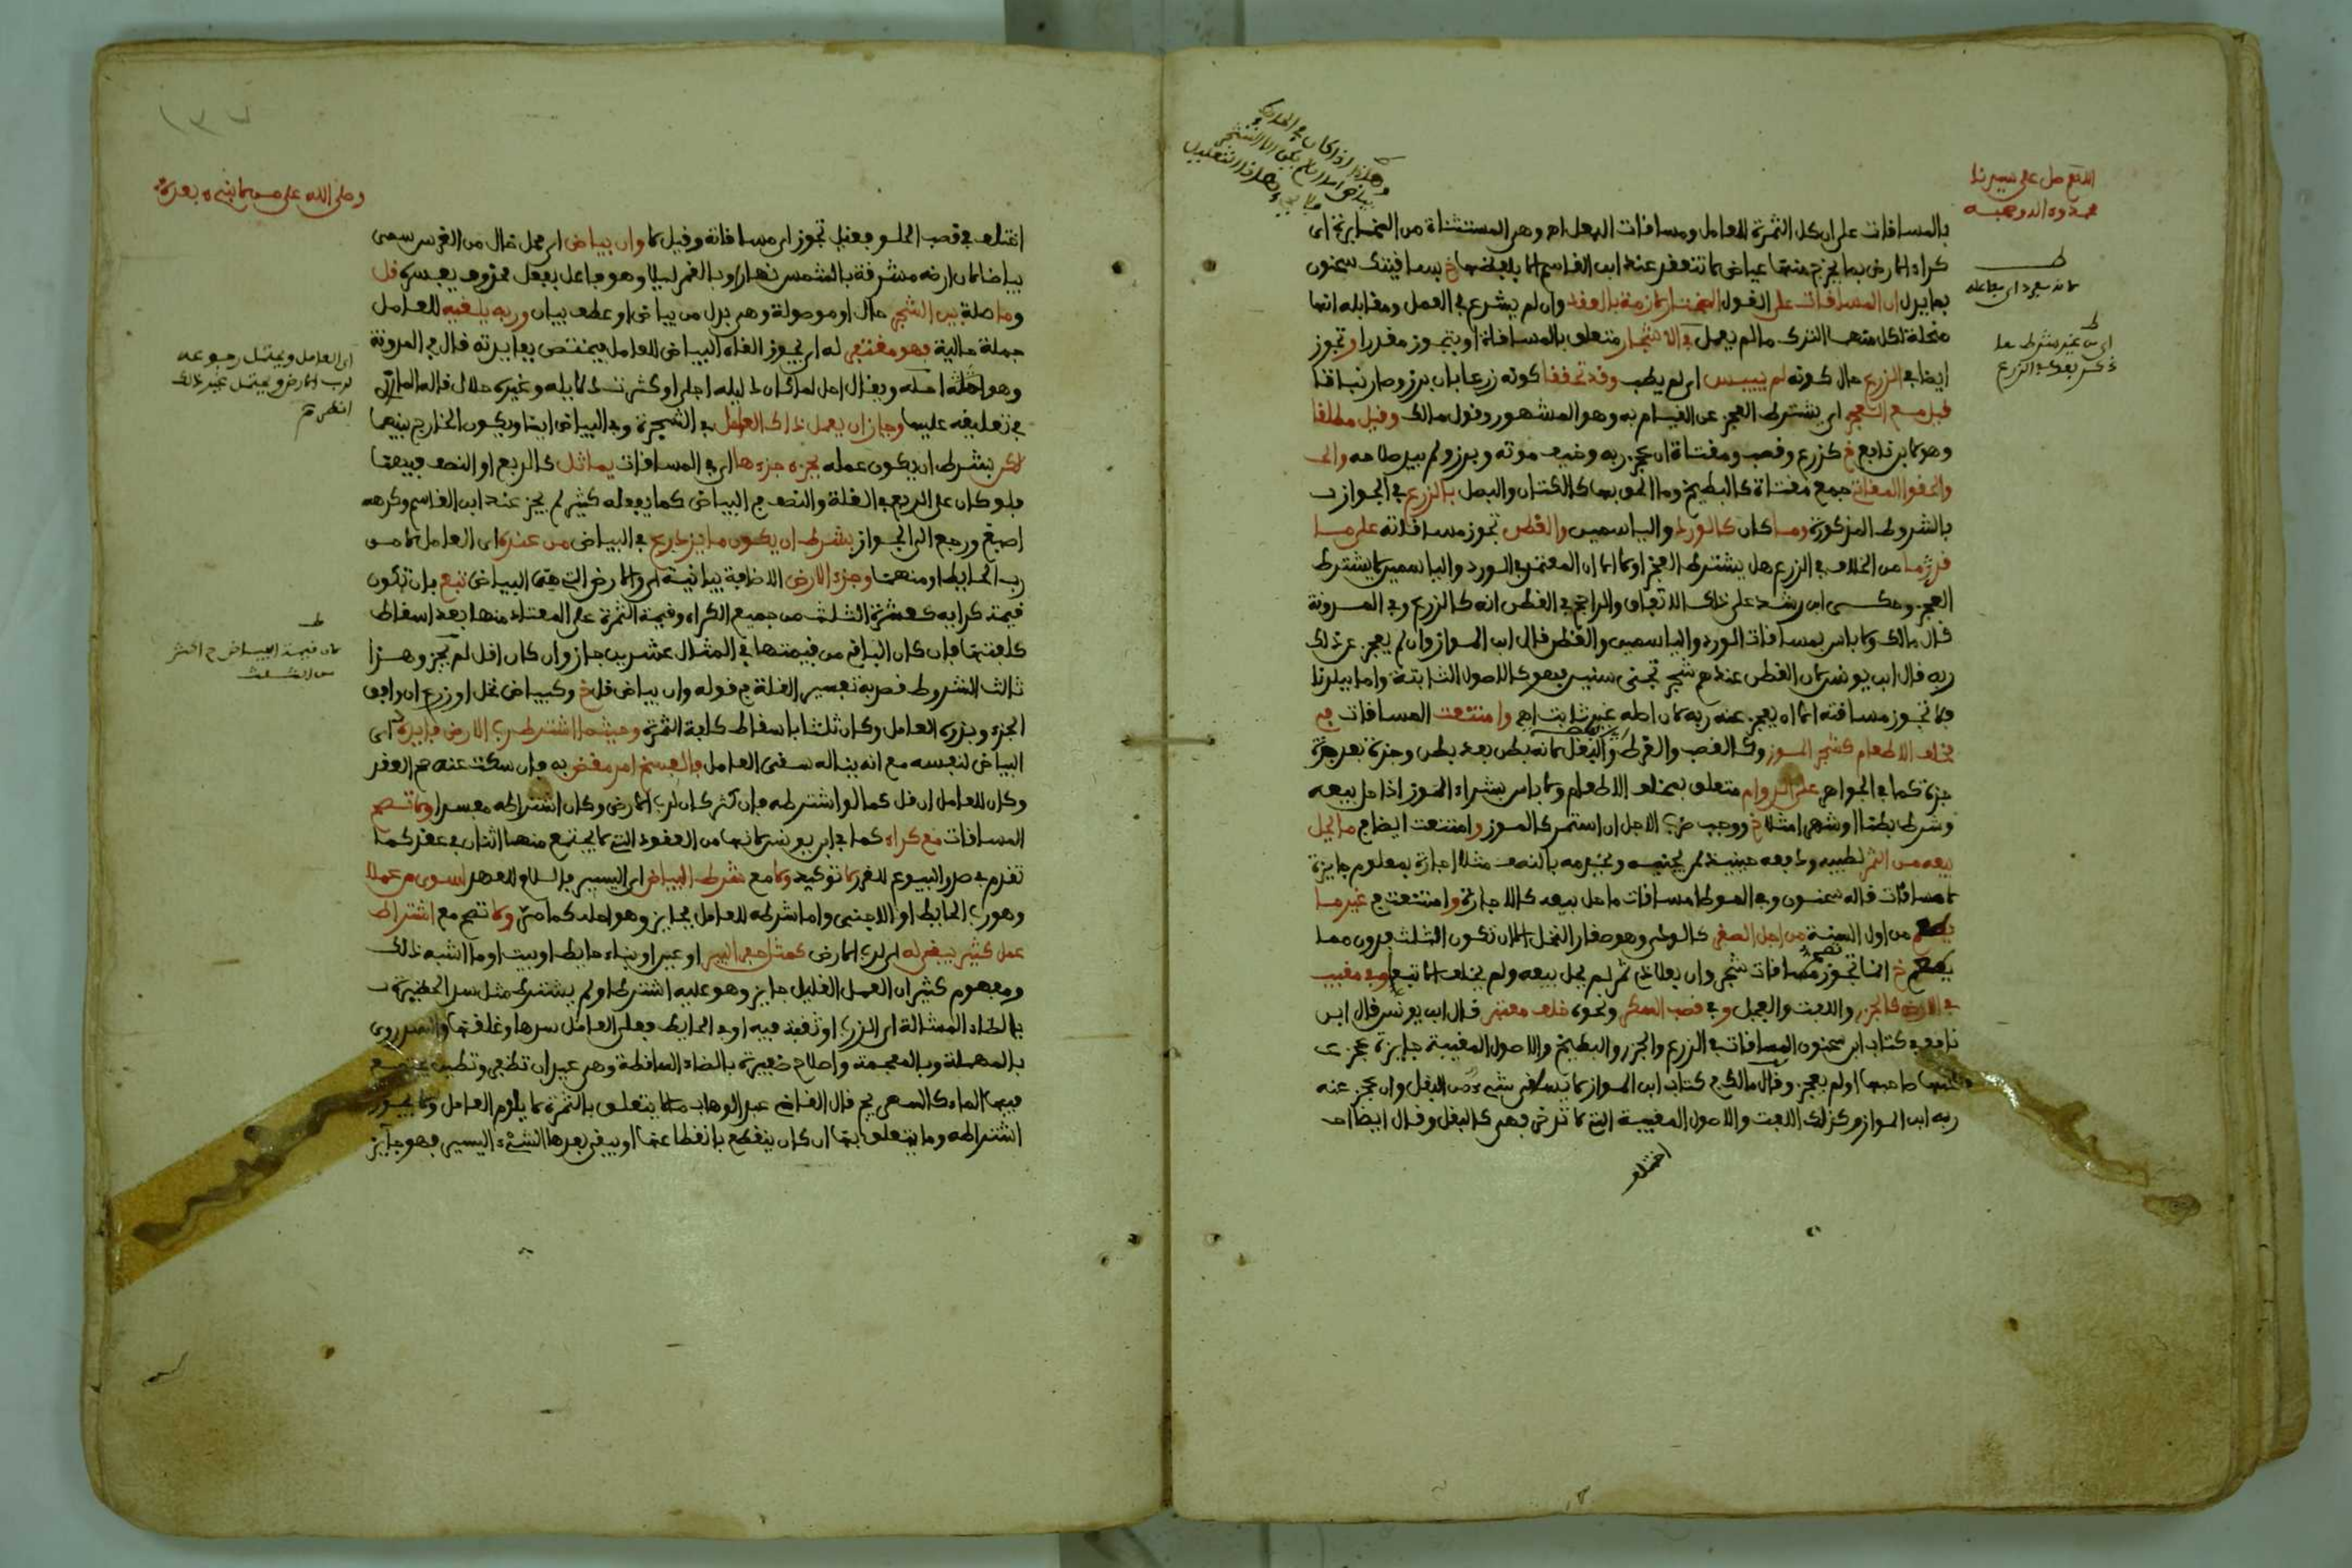 اللهم صل على سيدنا
محمد وءاله وصحبه
بالمسافات على ان كل الثمرة للعامل ومسافات البعل اه وهى المستثناة من المخابرة اى
كراء الارض بما يخرج منها عياض لا تنعقد عند ابن القاسم الا بلفظها خ بساقيتك سحنون
بما يدل ان المسافات على القول المختار لازمة بالعقد وان لم يشرع في العمل ومقابله انها
منحلة لكل منهما الترك ما لم يعمل في الاشجار متعلق بالمسافاة او بتجوز مقدرا وتجوز
ايضا في الزرع حال كونه لم ييبس اى لم يطب وقد تحققا كونه زرعا بان برز وصار نباتا
قيل مع العجز اى بشرط العجز عن القيام به وهو المشهور وقول مالك وقيل مطلقا
وهو لابن نابع خ كزرع وقصب ومقثاة ان عجز ربه وخيف موته وبرز ولم يبد صلاحه
والحقوا المقاثي جمع مقثاة كالبطيخ وما الحق بها كالكتان والبصل بالزرع في الجواز
بالشروط المذكورة وما كان كالورد والياسمين والقطن تجوز مسافاته على ما
قدما من الخلاف في الزرع هل يشترط العجز اولا الا ان المعتمد في الورد والياسمين لا يشترط
العجز وحكى ابن رشد على ذلك الاتفاق والراجح في القطن انه كالزرع وفي المدونة
قال مالك ولا باس بمسافات الورد والياسمين والقطن قال ابن المواز وان لم يعجز عن ذلك
ربه قال ابن يونس لان القطن عندهم شجر تجنى سنين فهو كالاصول الثابتة واما ببلدنا
فلا تجوز مسافته الا ان يعجز عنه ربه لان اصله غير ثابت اه وامتنعت المسافات في
مخلف الاطعام كشجر الموز وكالقصب والقرط والبقل لانه بطن بعد بطن وجزة بعد جزة
جزة كما في الجواهر على الدوام متعلق بمخلف الاطعام ولا باس بشراء الموز اذا حل بيعه
وشرط بطنا او شهرا مثلا خ ووجب ضرب الاجل ان استمر كالموز وامتنعت ايضا في ما يحل
بيعه من الثمر لطيبه ودفعه حينئذ لمن يجنيه ويخدمه بالنصف مثلا اجارة بمعلوم جايزة
لا مسافات قاله سحنون وفي الموطا مسافات ما حل بيعه كالاجارة وامتنعت في غير ما
يطعم من اول السنة من اجل الصغر كالودي وهو صغار النخل الا ان تكون الثلث فدون مما
يطعم خ انما تجوز مسافات شجر وان بعلا ذي ثمر لم يحل بيعه ولم يخلف الا تبعا وفي مغيب
في الارض كالجزر واللفت والفجل وفي قصب السكر ونحوه خلف معتبر قال ابن يونس قال ابن
نافع في كتاب ابن سحنون المسافات في الزرع والجزر والبطيخ والاصول المغيبة جايزة عجز عن
صاحبها او لم يعجز وقال مالك في كتاب ابن المواز لا يساقى شيء من البقل وان عجز عنه
ربه ابن المواز وكذلك اللفت والاصول المغيبة التي لا ترى فهي كالبقل وقال ايضا
اختلف
وصلى الله على من لا نبى بعده
اختلف في قصب الحلو فقيل تجوز اى مسافاته وقيل لا وان بياض اى محل خال من الغرس سمى
بياضا لان ارضه مشرفة بالشمس نهارا وبالقمر ليلا وهو فاعل بفعل محذوف يفسره قل
وما صلة بين الشجر حال او موصولة وهي بدل من بياض او عطف بيان وربه يلغيه للعامل
جملة حالية فهو مغتفر له اى يجوز الغاء البياض للعامل فيختص بفايدته قال في المدونة
وهو احله
في تعليقه عليها وجاز ان يعمل ذاك العامل في الشجرة وفي البياض ايضا ويكون الخارج بينهما
لكن بشرط ان يكون عمله بجزء جزءها اى في المسافات يماثل كالربع او النصف فيهما
فلو كان على الربع في الغلة والنصف في البياض كما يفعله كثير لم يجز عند ابن القاسم وكرهه
اصبغ ورجع الى الجواز بشرط ان يكون ما يزدرع في البياض من عنده اى العامل لا من
رب الحايط او منهما وجزء الارض الاضافة بيانية اى والارض التي هي البياض تبع بان تكون
قيمة كرايه كعشرة الثلث من جميع الكراء وقيمة الثمرة على المعتاد منها بعد اسقاط
كلفتها فان كان الباقي من قيمتها في المثال عشرين جاز وان كان اقل لم يجز وهذا
ثالث الشروط فصر به تفسير الغلة في قوله وان بياض قل خ وكبياض نخل او زرع ان وافق
الجزء وبذره العامل وكان ثلثا باسقاط كلفة الثمرة وحيثما اشترط رب الارض فايدة اى
البياض لنفسه مع انه يناله سقى العامل فالفسخ امر مقضى به فان سكت عنه في العقد
وكان للعامل ان قل كما لو اشترطه فان كثر كان لرب الارض وكان اشتراطه مفسدا ولا تصح
المسافات مع كراء كما في ابن يونس لانها من العقود التي لا يجتمع منها اثنان في عقد كما
تقدم في صدر البيوع للغرر لا توكيد ولا مع شرط البياض اى اليسير فال للعهد لسوى من عملا
وهو رب الحايط او الاجنبى واما شرطه للعامل فجايز وهو احله كما مر ولا تصح مع اشتراط
عمل كثير يبقى له اى لرب الارض كمثل حفر البير او عين او بناء حايط او بيت او ما اشبه ذلك
ومفهوم كثير ان العمل القليل جايز وهو عليه اشترط او لم يشترط مثل سد الحظيرة
بالظاء المشالة اى الزرب او ثقبة فيه او في الحايط فعلى العامل سدها وغلقها والسد روى
بالمهملة وبالمعجمة واصلاح ضفيرة بالضاد الساقطة وهي عيدان تظفر وتطين يجتمع
فيها الماء كالصهريج قال القاضى عبد الوهاب ما لا يتعلق بالثمرة لا يلزم العامل ولا يجوز
اشتراطه وما يتعلق بها ان كان ينقطع بانقطاعها او يبقى بعدها الشيء اليسير فهو جايز
اى العامل ويحتمل رجوعه
لرب الارض ويحتمل غير ذلك
انظره
لان قيمة البياض ح اكثر
من الثلث